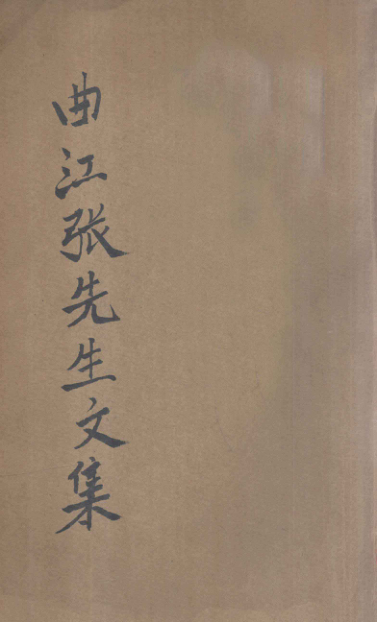 曲江张先生文集